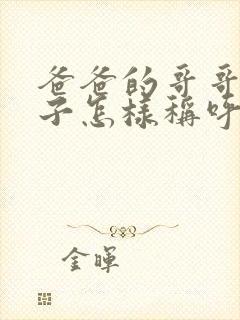 爸爸的哥哥
子怎样称呼
金晖